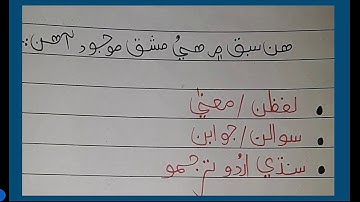 هن سبق ۾ هيُ مشق موجود آهن:
لفظن / معنيٰ
سوالن / جوابن
سنڌي اُردُو ترجمو